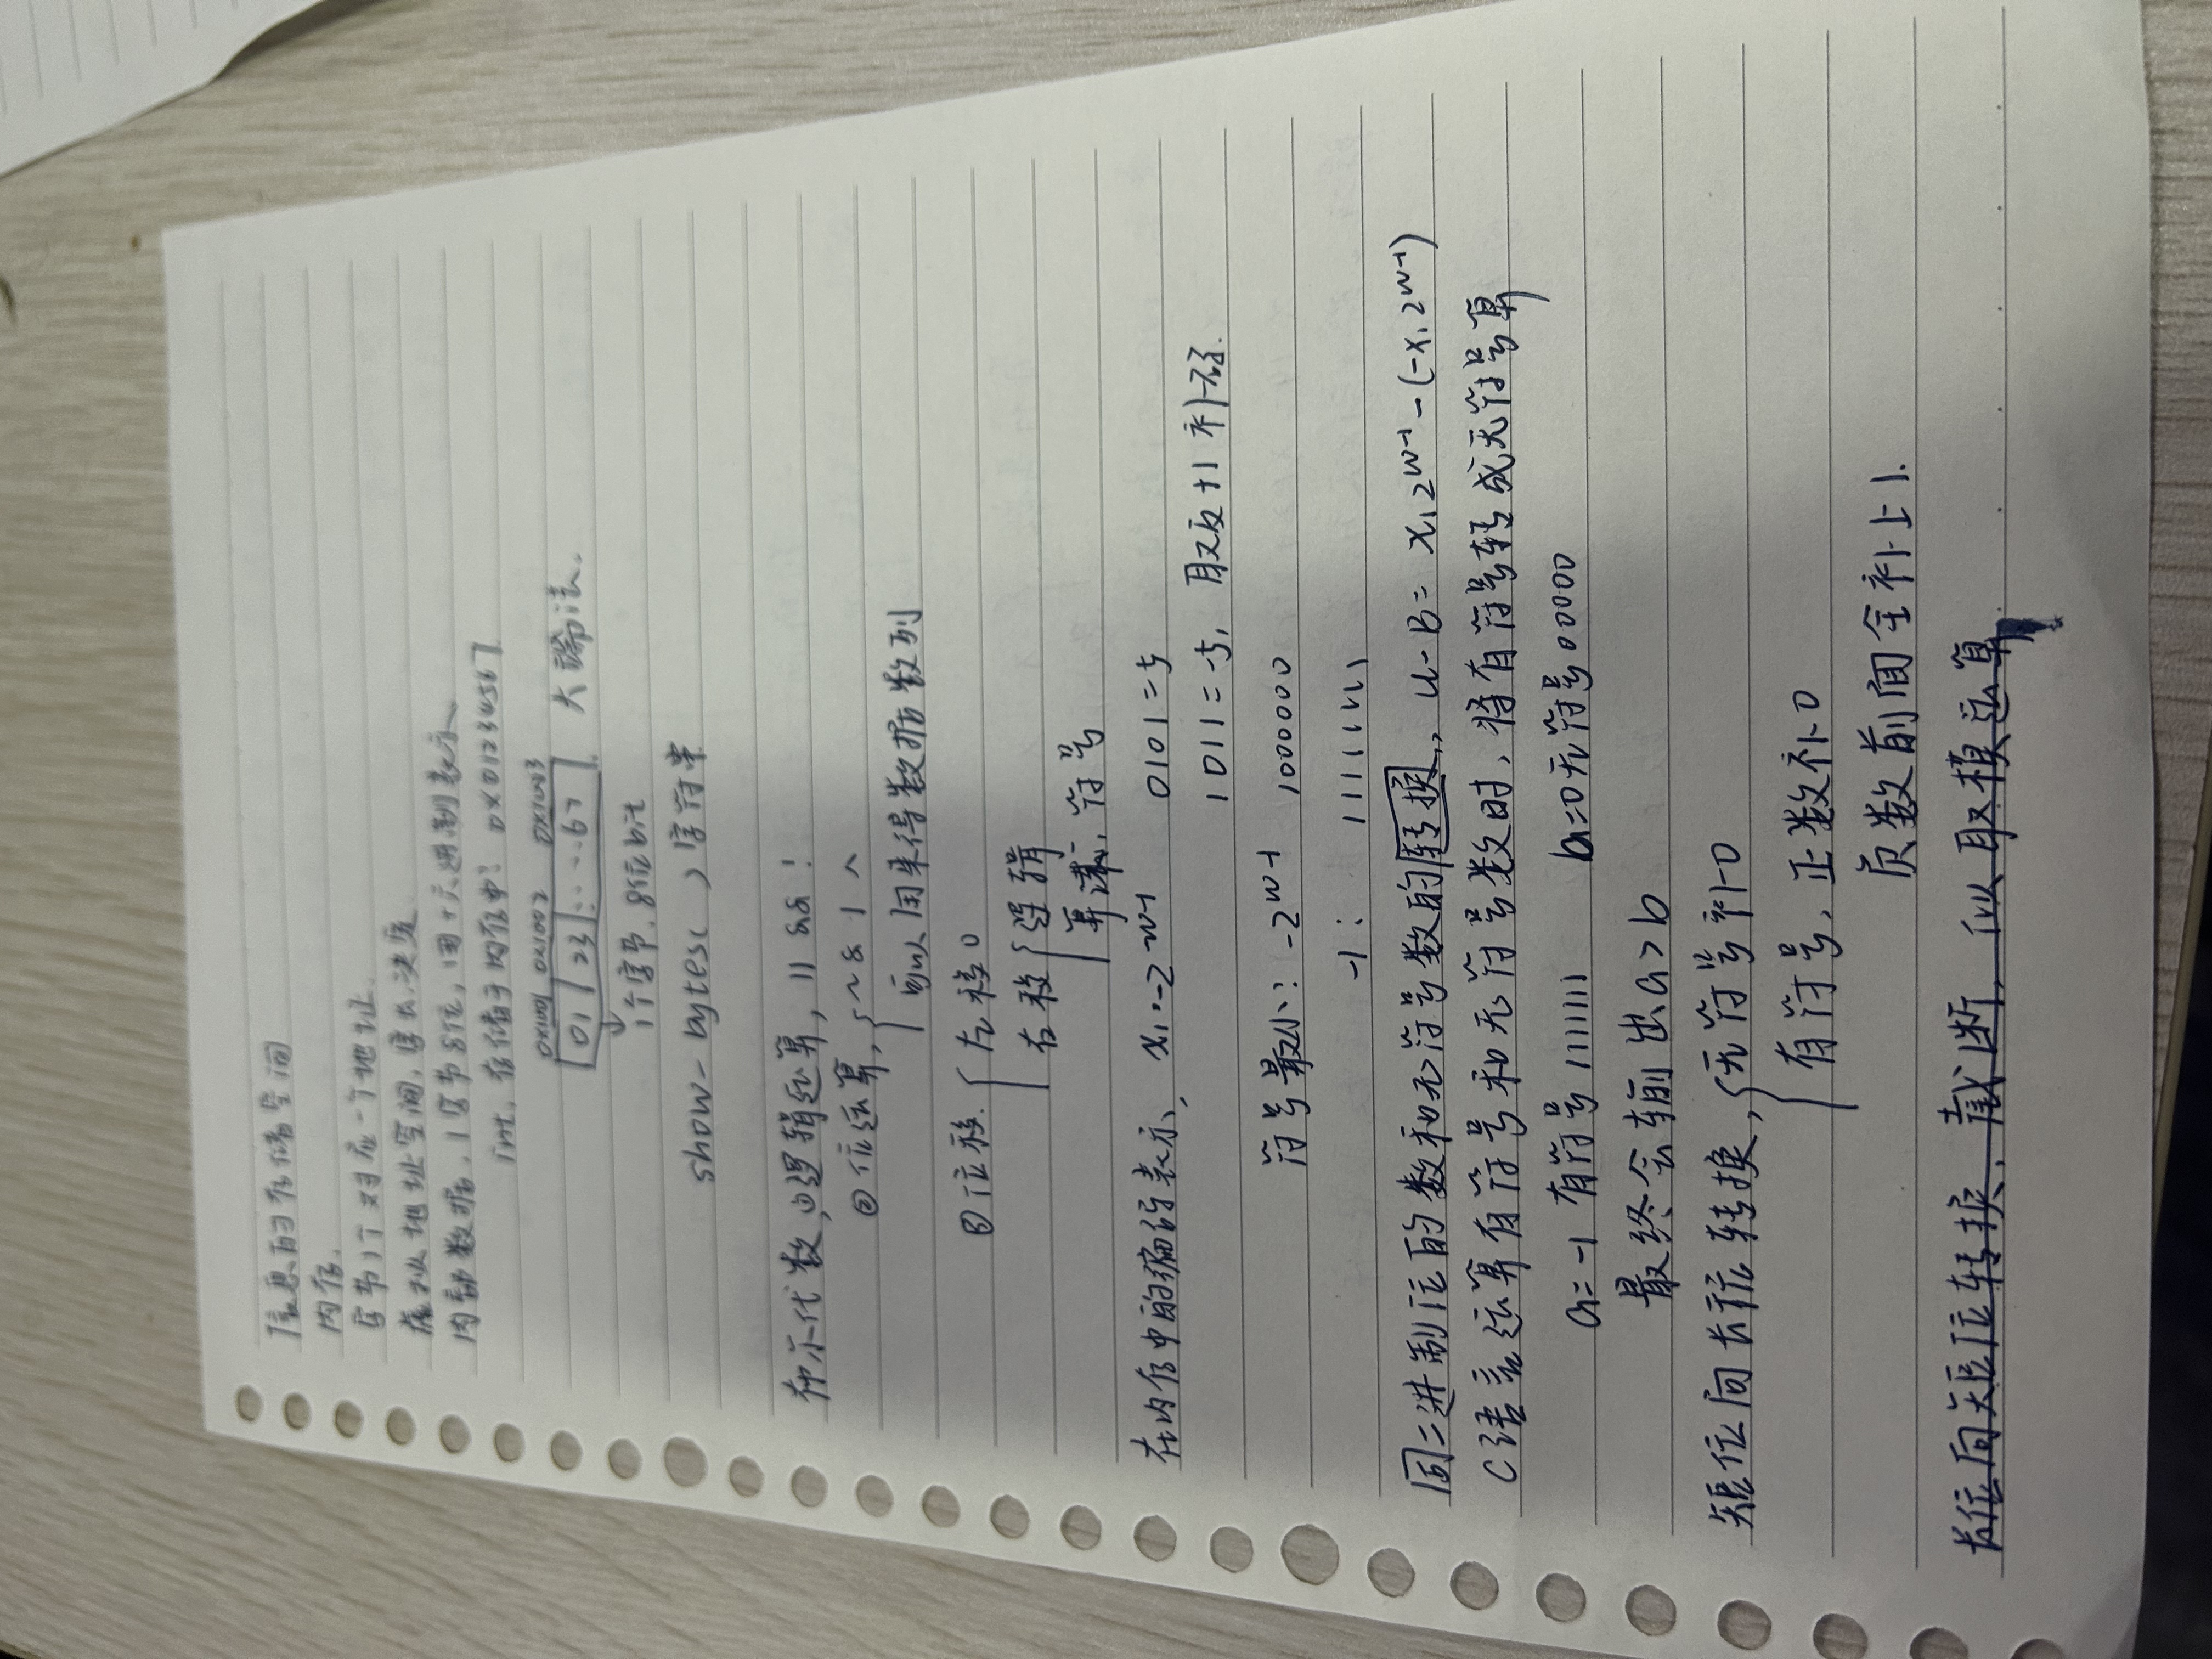 信息的存储空间
内存.
字节1个对应一个地址.
虚拟地址空间,字长决定
内部数据,1字节8位,用十六进制表示
int,存储于内存中: 0x01234567
0x1001 0x1002 0x1003
01 23 ····67 大端法.
1个字节.8位bit
show-bytes( )字符串
布尔代数,①逻辑运算, || && !
②位运算, ~ & | ^
可以用来得数据数列
③位移. 左移0
右移 逻辑
算术,符号
在内存中的编码表示, x₁·-2^w-1 0101=5
1011=-5, 取反+1 补码.
符号最小: -2^w-1 1000000
-1: 11111111
同二进制位的数和无符号数的转换, u-B= x₁2^w-1-(-x₁2^w-1)
C语言运算有符号和无符号数时,将有符号转成无符号算
a=-1 有符号1111111 b=0无符号00000
最终会输出a>b
短位向长位转换, 无符号补0
有符号,正数补0
负数前面全补上1.
长位向短位转换,截断,似取模运算